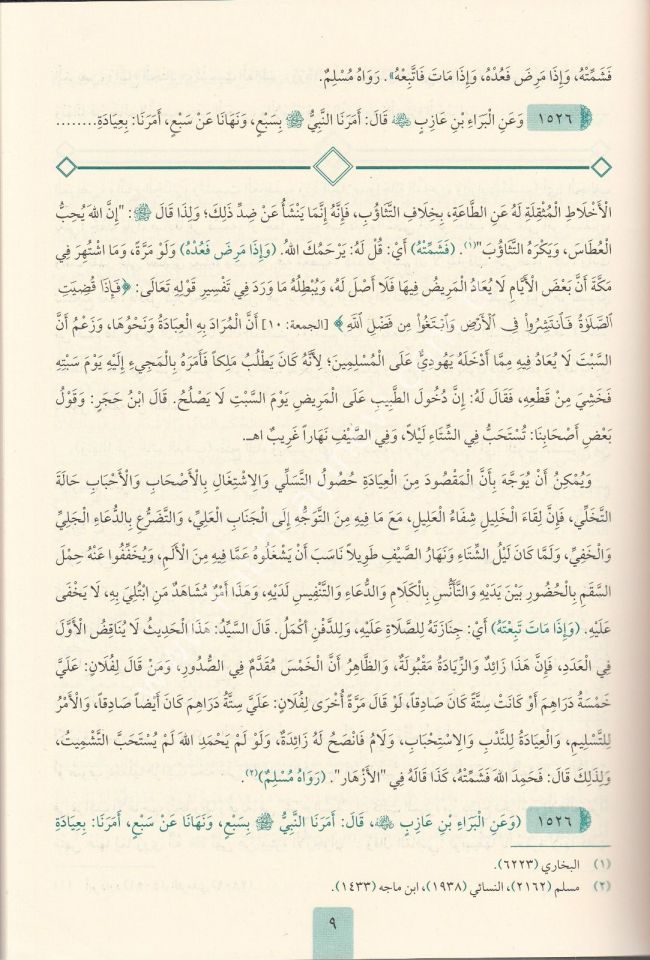 فَشَمِّتْهُ، وَإِذَا مَرِضَ فَعُدْهُ، وَإِذَا مَاتَ فَاتَّبِعْهُ». رَوَاهُ مُسْلِمٌ.
١٥٢٦ وَعَنِ الْبَرَاءِ بْنِ عَازِبٍ ﵁ قَالَ: أَمَرَنَا النَّبِيُّ ﷺ بِسَبْعٍ، وَنَهَانَا عَنْ سَبْعٍ، أَمَرَنَا: بِعِيَادَةِ........
الْأَخْلَاطِ الْمُثْقِلَةِ لَهُ عَنِ الطَّاعَةِ، بِخِلَافِ التَّثَاؤُبِ، فَإِنَّهُ إِنَّمَا يَنْشَأُ عَنْ ضِدِّ ذَلِكَ؛ وَلِذَا قَالَ ﷺ: "إِنَّ اللهَ يُحِبُّ
الْعُطَاسَ، وَيَكْرَهُ التَّثَاؤُبَ"(١). (فَشَمِّتْهُ) أَيْ: قُلْ لَهُ: يَرْحَمُكَ اللهُ. (وَإِذَا مَرِضَ فَعُدْهُ) وَلَوْ مَرَّةً، وَمَا اشْتُهِرَ فِي
مَكَّةَ أَنَّ بَعْضَ الْأَيَّامِ لَا يُعَادُ الْمَرِيضُ فِيهَا فَلَا أَصْلَ لَهُ، وَيُبْطِلُهُ مَا وَرَدَ فِي تَفْسِيرِ قَوْلِهِ تَعَالَى: ﴿فَإِذَا قُضِيَتِ
الصَّلَوٰةُ فَٱنتَشِرُوا۟ فِى ٱلْأَرْضِ وَٱبْتَغُوا۟ مِن فَضْلِ ٱللَّهِ﴾ [الجمعة: ١٠] أَنَّ الْمُرَادَ بِهِ الْعِيَادَةُ وَنَحْوُهَا، وَزَعْمُ أَنَّ
السَّبْتَ لَا يُعَادُ فِيهِ مِمَّا أَدْخَلَهُ يَهُودِيٌّ عَلَى الْمُسْلِمِينَ؛ لِأَنَّهُ كَانَ يَطْلُبُ مَلِكاً فَأَمَرَهُ بِالْمَجِيءِ إِلَيْهِ يَوْمَ سَبْتِهِ
فَخَشِيَ مِنْ قَطْعِهِ، فَقَالَ لَهُ: إِنَّ دُخُولَ الطَّبِيبِ عَلَى الْمَرِيضِ يَوْمَ السَّبْتِ لَا يَصْلُحُ. قَالَ ابْنُ حَجَرٍ: وَقَوْلُ
بَعْضِ أَصْحَابِنَا: تُسْتَحَبُّ فِي الشِّتَاءِ لَيْلاً، وَفِي الصَّيْفِ نَهَاراً غَرِيبٌ اهـ.
وَيُمْكِنُ أَنْ يُوَجَّهَ بِأَنَّ الْمَقْصُودَ مِنَ الْعِيَادَةِ حُصُولُ التَّسَلِّي وَالِاشْتِغَالِ بِالْأَصْحَابِ وَالْأَحْبَابِ حَالَةَ
التَّخَلِّي، فَإِنَّ لِقَاءَ الْخَلِيلِ شِفَاءُ الْعَلِيلِ، مَعَ مَا فِيهِ مِنَ التَّوَجُّهِ إِلَى الْجَنَابِ الْعَلِيِّ، وَالتَّضَرُّعِ بِالدُّعَاءِ الْجَلِيِّ
وَالْخَفِيِّ، وَلَمَّا كَانَ لَيْلُ الشِّتَاءِ وَنَهَارُ الصَّيْفِ طَوِيلاً نَاسَبَ أَنْ يَشْغَلُوهُ عَمَّا فِيهِ مِنَ الْأَلَمِ، وَيُخَفِّفُوا عَنْهُ حِمْلَ
السَّقَمِ بِالْحُضُورِ بَيْنَ يَدَيْهِ وَالتَّأَنُّسِ بِالْكَلَامِ وَالدُّعَاءِ وَالتَّنْفِيسِ لَدَيْهِ، وَهَذَا أَمْرٌ مُشَاهَدٌ مَنِ ابْتُلِيَ بِهِ، لَا يَخْفَى
عَلَيْهِ. (وَإِذَا مَاتَ تَبِعْتَهُ) أَيْ: جِنَازَتَهُ لِلصَّلَاةِ عَلَيْهِ، وَلِلدَّفْنِ أَكْمَلُ. قَالَ السَّيِّدُ: هَذَا الْحَدِيثُ لَا يُنَاقِضُ الْأَوَّلَ
فِي الْعَدَدِ، فَإِنَّ هَذَا زَائِدٌ وَالزِّيَادَةُ مَقْبُولَةٌ، وَالظَّاهِرُ أَنَّ الْخَمْسَ مُقَدَّمٌ فِي الصُّدُورِ، وَمَنْ قَالَ لِفُلَانٍ: عَلَيَّ
خَمْسَةُ دَرَاهِمَ أَوْ كَانَتْ سِتَّةً كَانَ صَادِقاً، لَوْ قَالَ مَرَّةً أُخْرَى لِفُلَانٍ: عَلَيَّ سِتَّةُ دَرَاهِمَ كَانَ أَيْضاً صَادِقاً، وَالْأَمْرُ
لِلتَّسْلِيمِ، وَالْعِيَادَةُ لِلنَّدْبِ وَالِاسْتِحْبَابِ، وَلَامُ فَانْصَحْ لَهُ زَائِدَةٌ، وَلَوْ لَمْ يَحْمَدِ اللهَ لَمْ يُسْتَحَبَّ التَّشْمِيتُ،
وَلِذَلِكَ قَالَ: فَحَمِدَ اللهَ فَشَمِّتْهُ، كَذَا قَالَهُ فِي "الْأَزْهَارِ". (رَوَاهُ مُسْلِمٌ)(٢).
١٥٢٦ (وَعَنِ الْبَرَاءِ بْنِ عَازِبٍ ﵁، قَالَ: أَمَرَنَا النَّبِيُّ ﷺ بِسَبْعٍ، وَنَهَانَا عَنْ سَبْعٍ، أَمَرَنَا: بِعِيَادَةِ
(١) البخاري (٦٢٢٣).
(٢) مسلم (٢١٦٢)، النسائي (١٩٣٨)، ابن ماجه (١٤٣٣).
٩